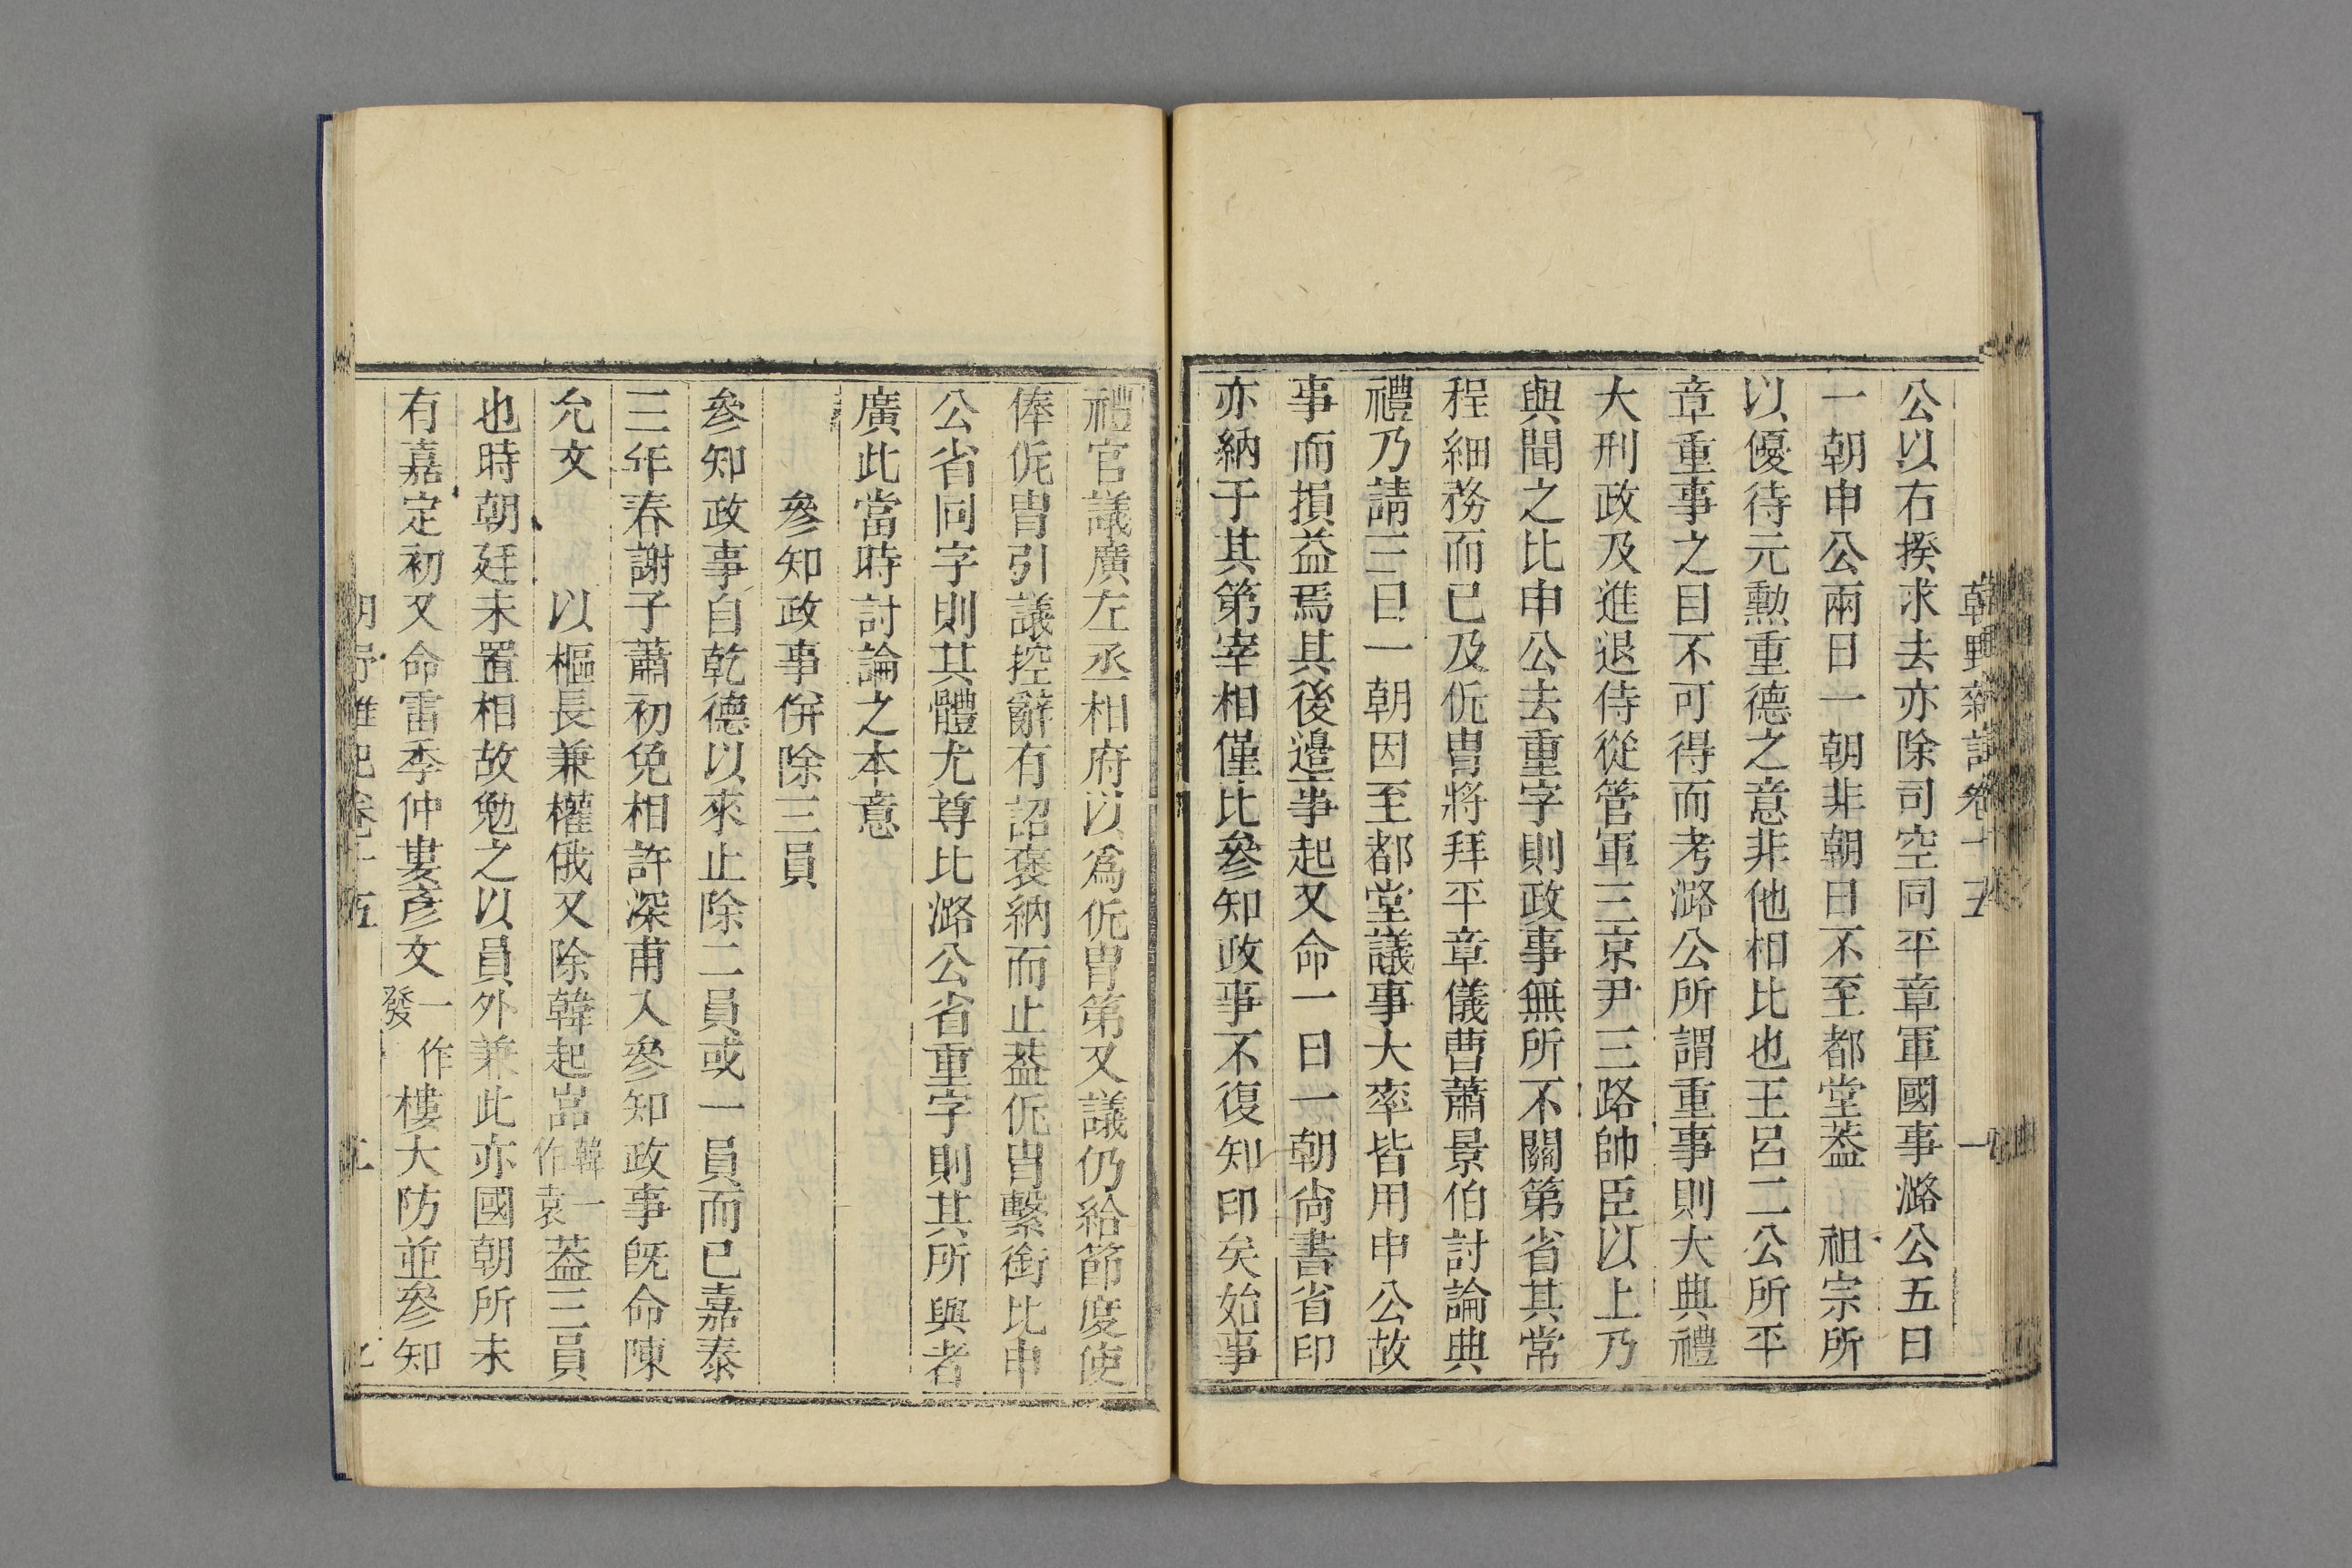 朝野雜記卷十五 一
公以右揆求去亦除司空同平章軍國事潞公五日
一朝申公兩日一朝非朝日不至都堂葢 祖宗所
以優待元勳重德之意非他相比也王呂二公所平
章重事之目不可得而考潞公所謂重事則大典禮
大刑政及進退侍從管軍三京尹三路帥臣以上乃
與聞之比申公去重字則政事無所不關第省其常
程細務而已及侂冑將拜平章儀曹蕭景伯討論典
禮乃請三日一朝因至都堂議事大率皆用申公故
事而損益焉其後邉事起又命一日一朝尙書省印
亦納于其第宰相僅比參知政事不復知印矣始事
禮官議廣左丞相府以爲侂冑第又議仍給節度使
俸侂冑引議控辭有詔褒納而止葢侂冑繫銜比申
公省同字則其體尤尊比潞公省重字則其所與者
廣此當時討論之本意
參知政事併除三員
參知政事自乾德以來止除二員或一員而已嘉泰
三年春謝子蕭初免相許深甫入參知政事旣命陳
允文 以樞長兼權俄又除韓起嵓韓一作袁葢三員
也時朝廷未置相故勉之以員外兼此亦國朝所未
有嘉定初又命雷季仲婁彥文一作發樓大防並參知